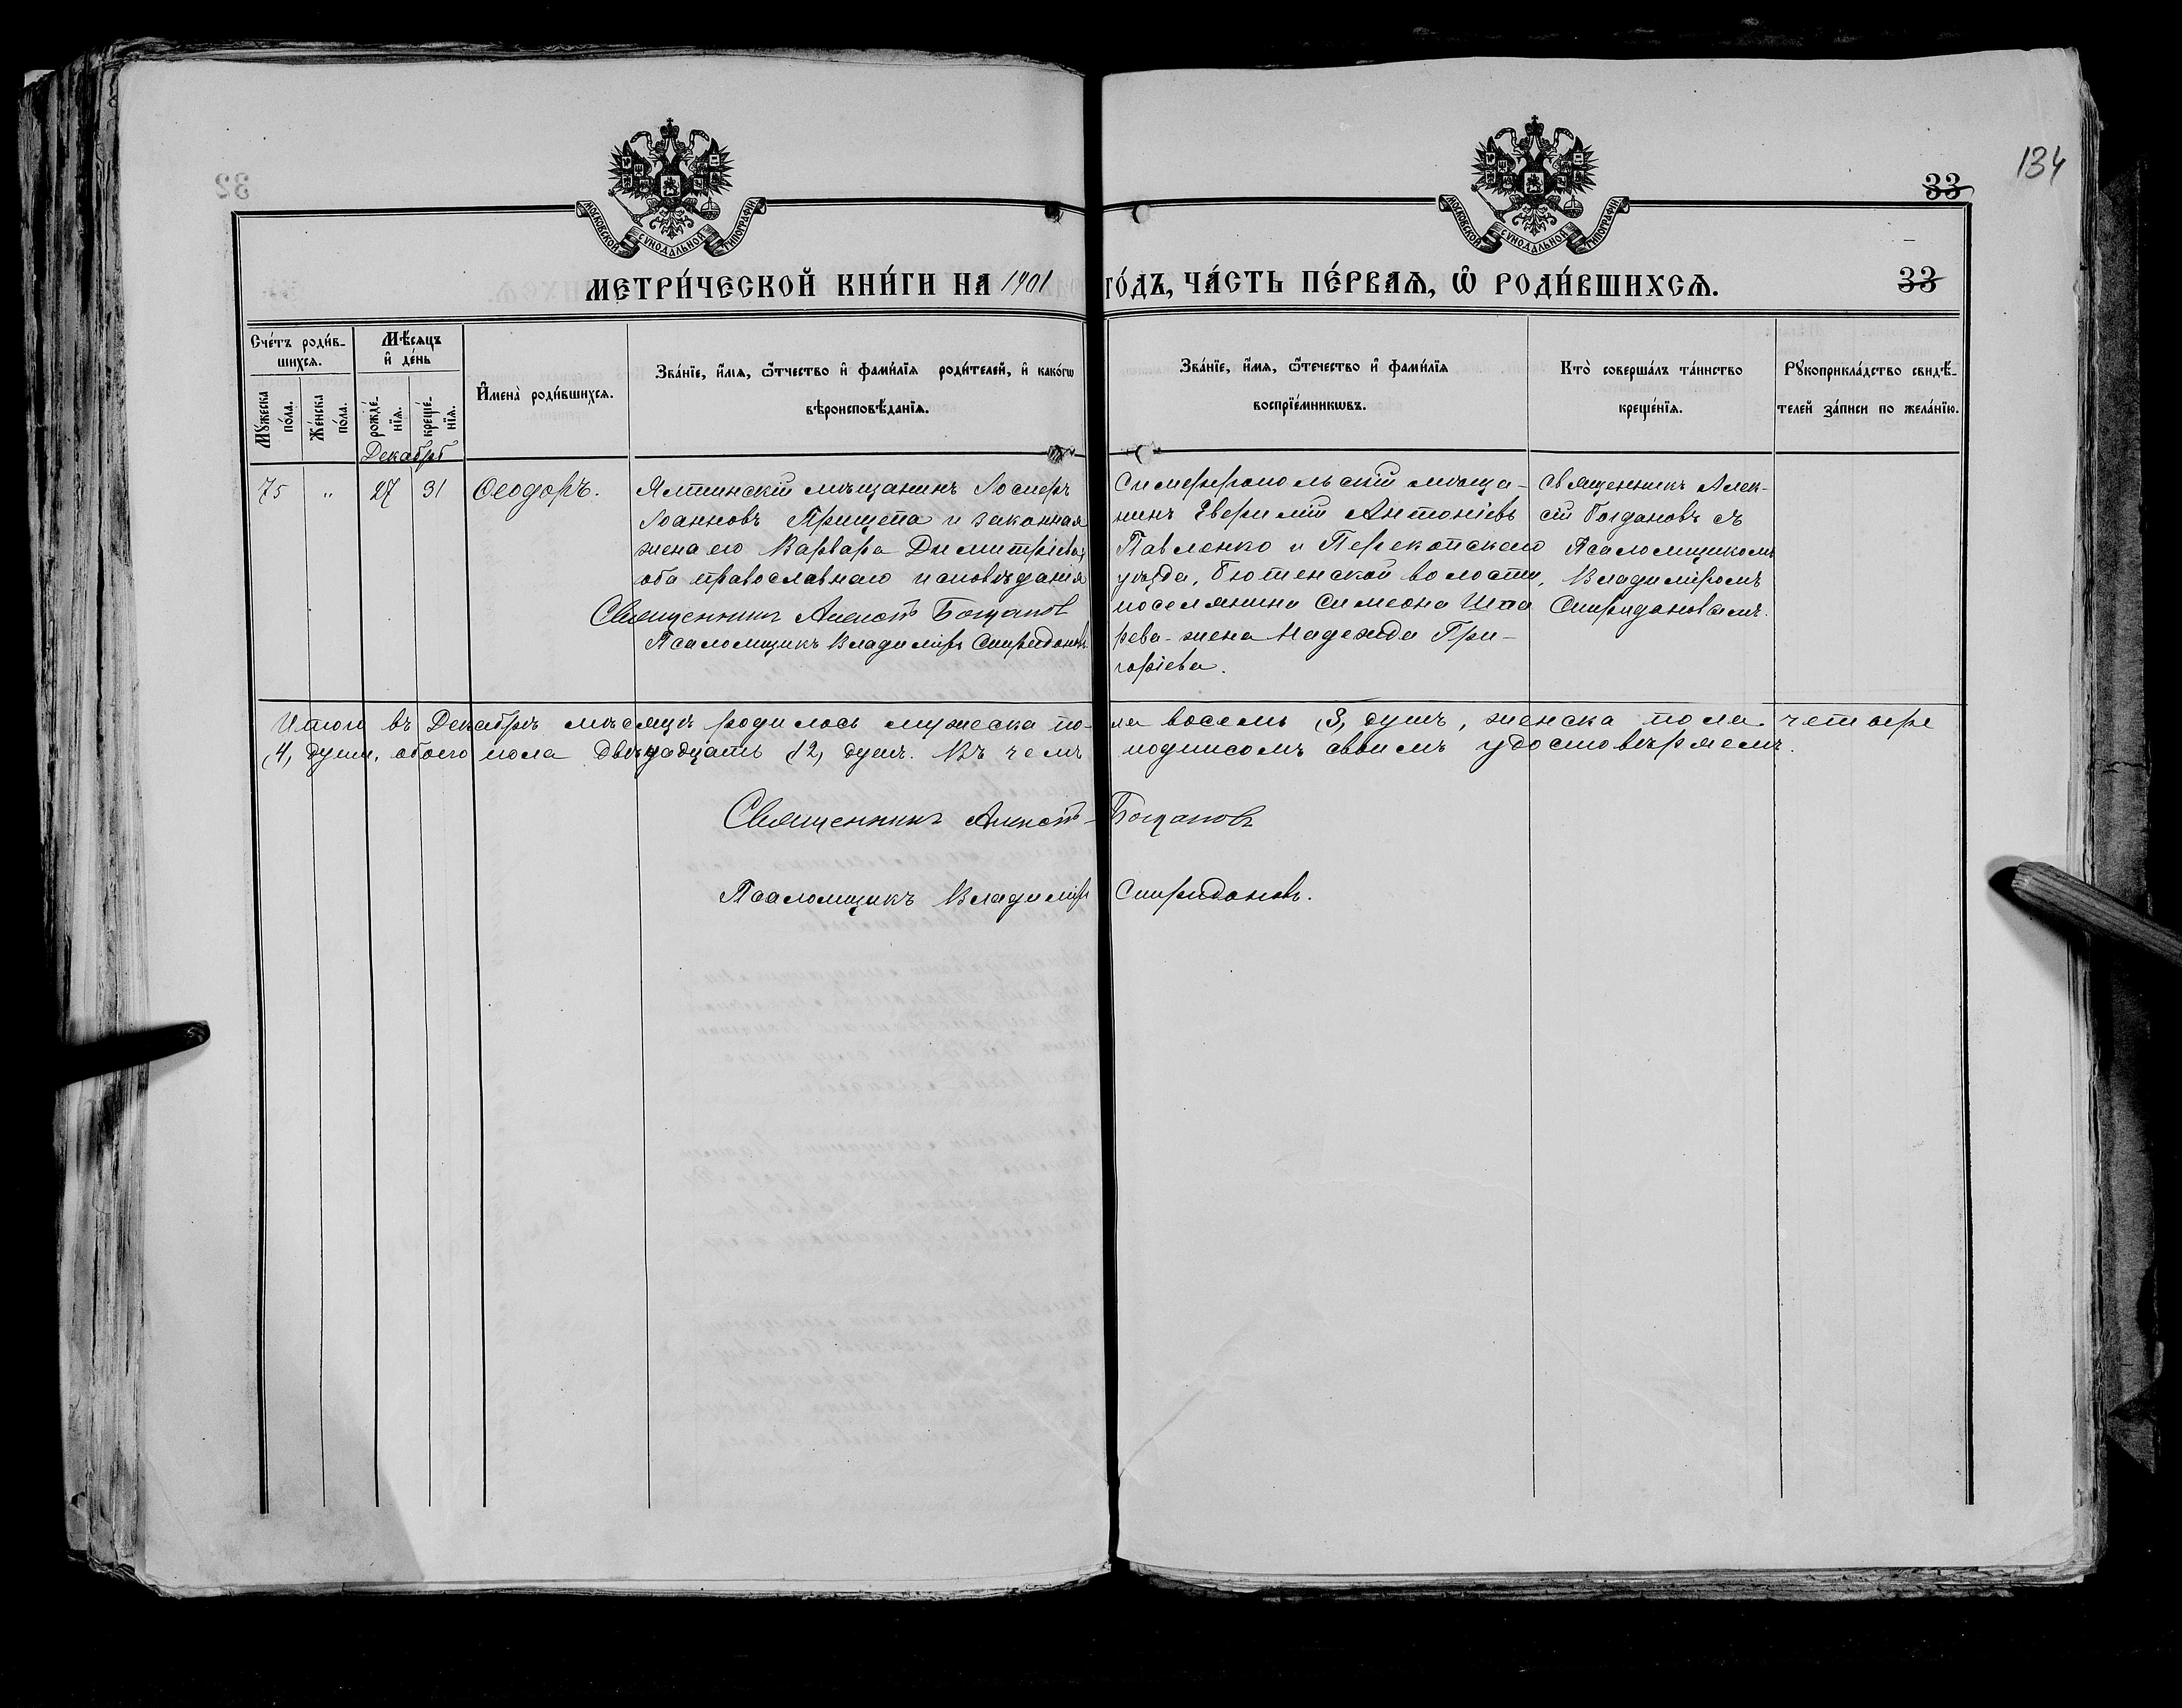 134
33
МОСКОВСКОЙ СѴНОДАЛЬНОЙ ТИПОГРАФІИ
МОСКОВСКОЙ СѴНОДАЛЬНОЙ ТИПОГРАФІИ
МЕТРИ́ЧЕСКОЙ КНИ́ГИ НА 1901 ГО́ДЪ, ЧА́СТЬ ПЕ́РВАѦ, Ѽ РОДИ́ВШИХСѦ.
33
Сче́тъ роди́в-
шихсѧ.
Мꙋ́жеска по́ла.
Же́нска по́ла.
Мѣ́сѧцъ
и҆ де́нь
рожде́-
нїѧ.
креще́-
нїѧ.
Декабрь
И҆мена̀ роди́вшихсѧ.
Зва́нїе, и҆́мѧ, ѻ҆́тчество и҆ фами́лїѧ роди́телей, и҆ како́гѡ
вѣроисповѣ́данїѧ.
Зва́нїе, и҆́мѧ, ѻ҆́течество и҆ фами́лїѧ
воспрїе́мникѡвъ.
Кто̀ соверша́лъ та́инство
креще́нїѧ.
Рꙋкоприкла́дство свидѣ́-
телей за́писи по жела́нїю.
75 " 27 31 Ѳеодоръ.
Ялтинскій мѣщанинъ Іосифъ
Іоанновъ Прищепа и законная
жена его Варвара Димитріева,
оба православнаго исповѣданія
Священникъ Алексѣй Богданов
Псаломщикъ Владиміръ Спиридоновъ
Симферопольскій мѣща-
нинъ Евфимій Антоніевъ
Павленко и Перекопскаго
уѣзда, Бютенской волости,
поселянина Симеона Шпа
рева - жена Надежда Гри-
горіева.
Священникъ Алек-
сій Богдановъ съ
Псаломщикомъ
Владиміромъ
Спиридоновымъ.
Итого въ Декабрѣ мѣсяцѣ родилось мужеска по-ла восемь (8) душъ, женска пола четыре
(4) души, обоего пола двѣнадцать (12) душъ. Въ чемъ подписомъ своимъ удостовѣряемъ.
Священникъ Алексѣй Богдановъ
Псаломщикъ Владиміръ Спиридоновъ.